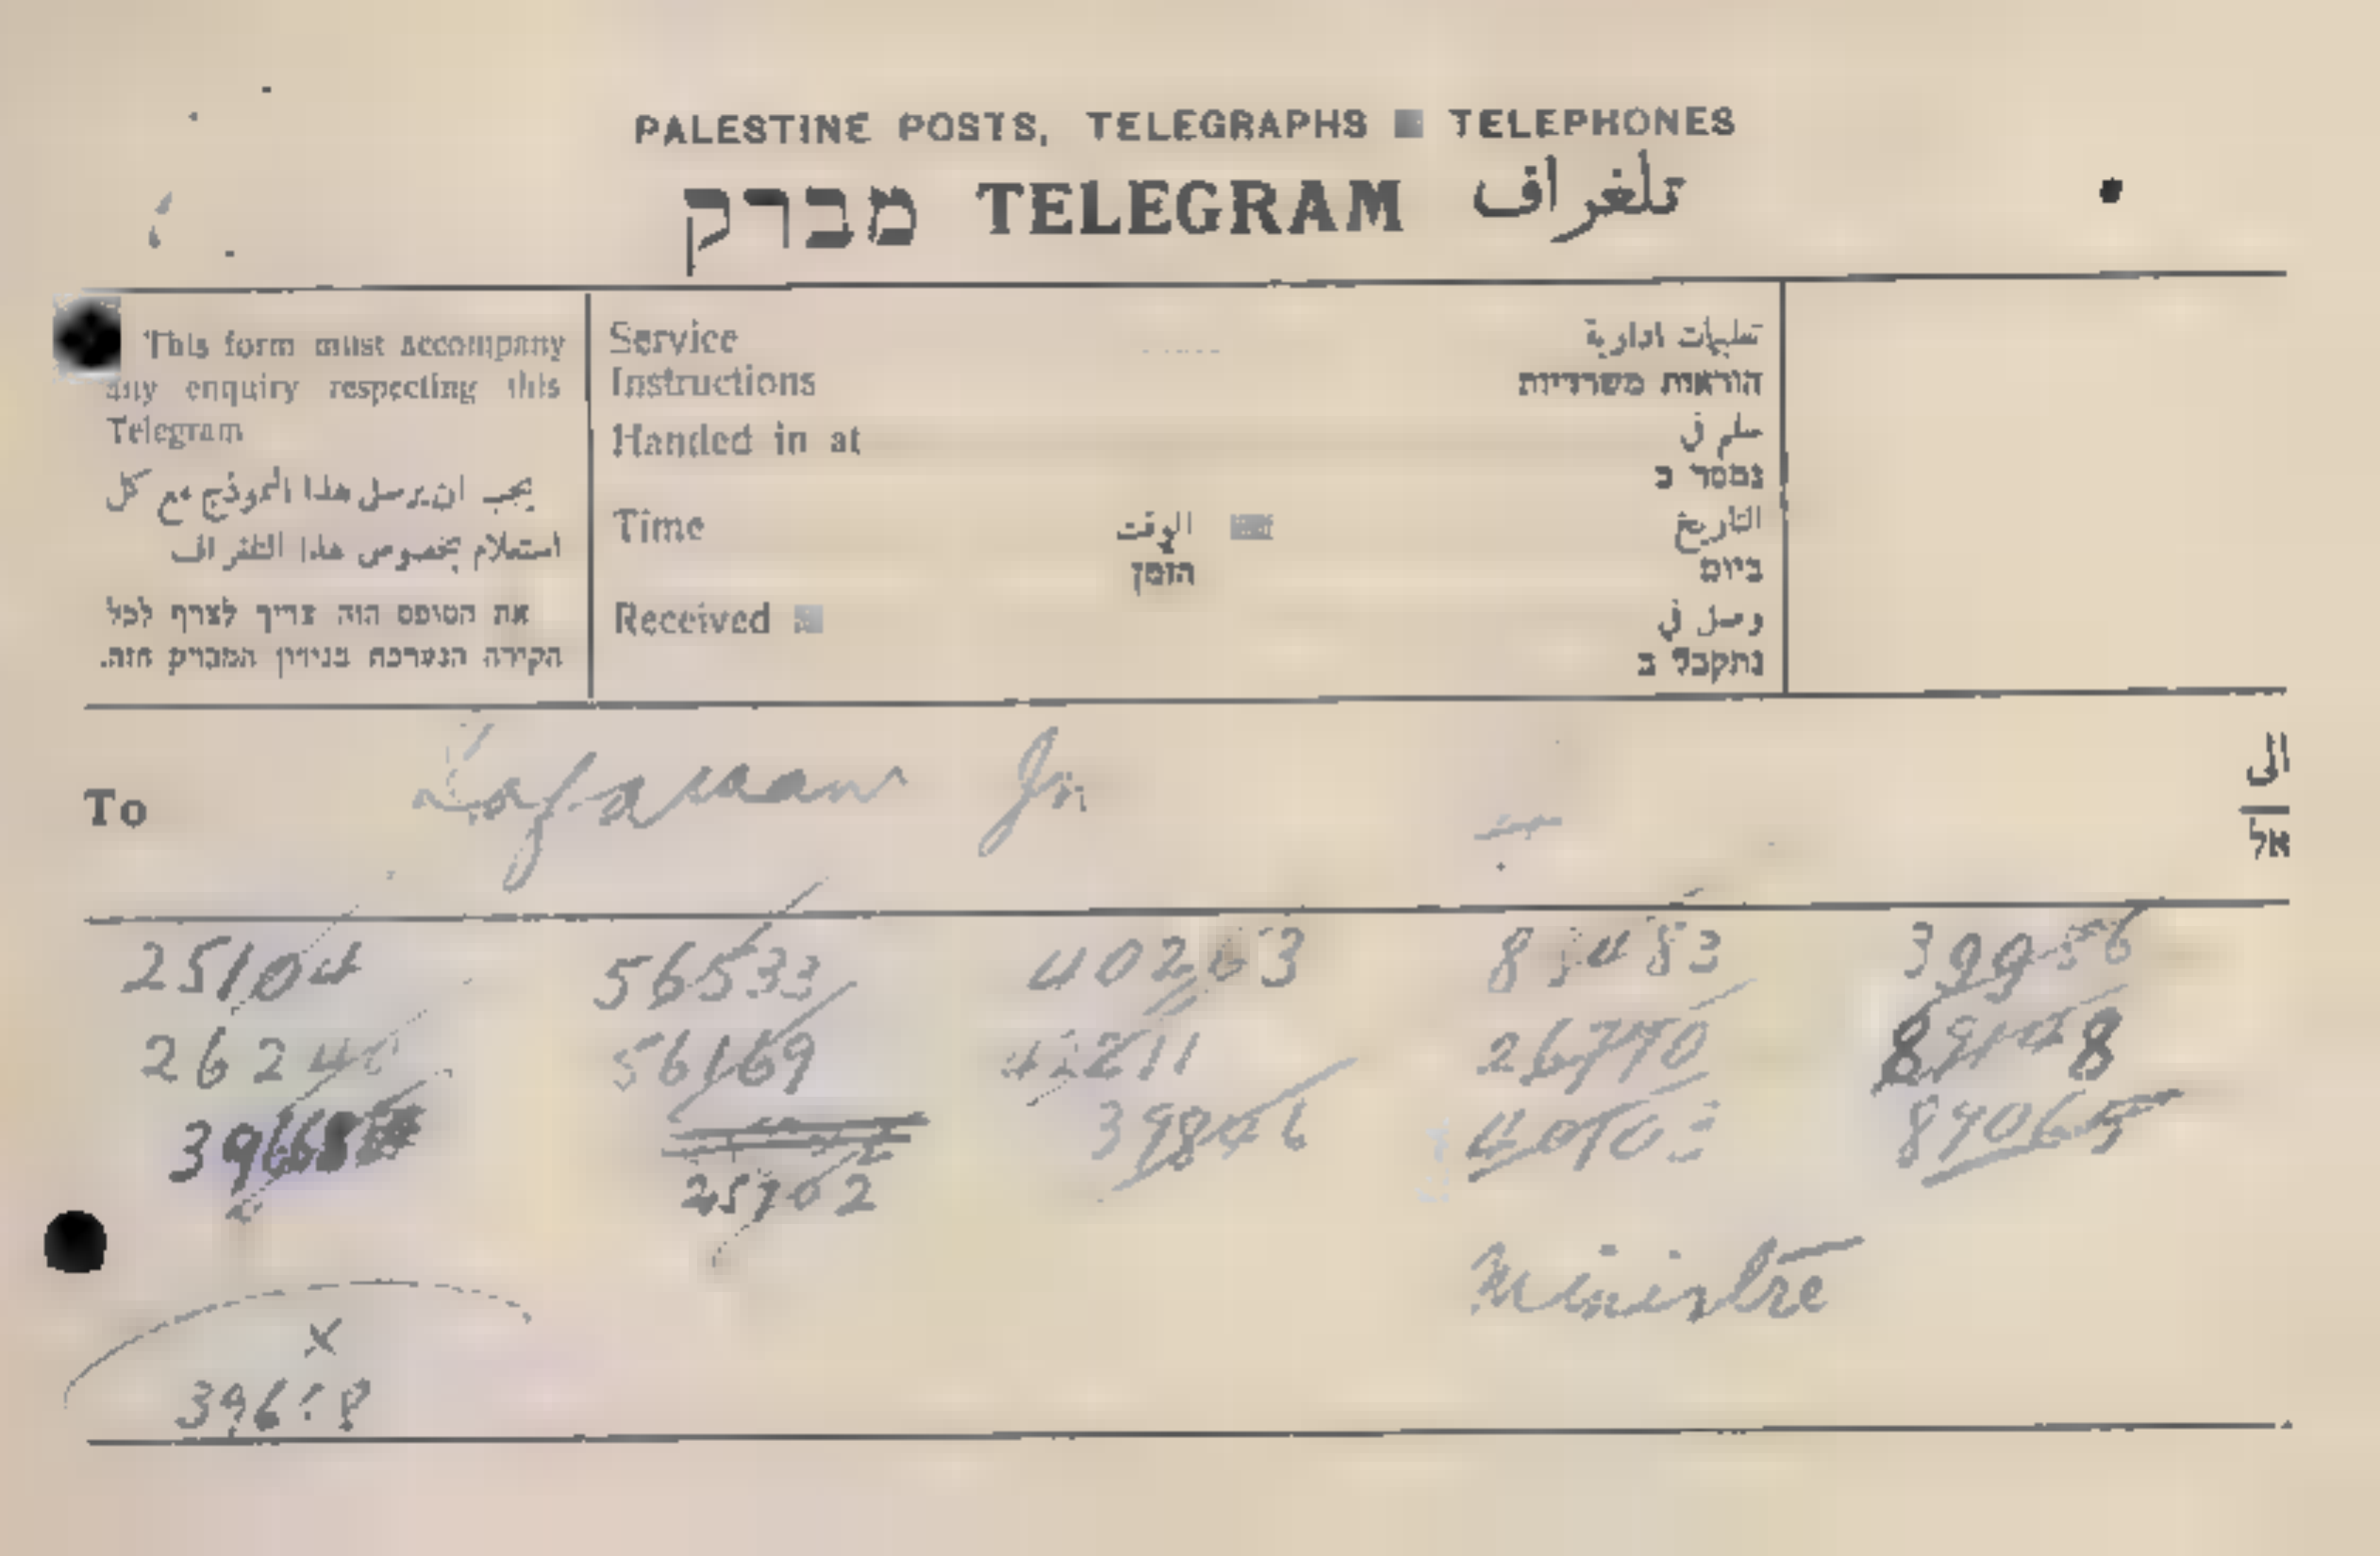 PALESTINE POSTS, TELEGRAPHS TELEPHONES
מברק TELEGRAM تلغراف
This form must accompany
any enquiry respecting this
Telegram
يجب ان يرسل هذا النموذج مع كل
استعلام بخصوص هذا التلغراف
את הטופס הזה צריך לצרף לכל
חקירה הנערכת בנוגע המברק הזה.
Service
Instructions
تعليمات ادارية
הוראות משרדיות
Handed in at
سلم في
נמסר ב
Time الوقت التاريخ
הזמן ביום
Received
وصل في
נתקבל ב
To
الى
אל
25104 56533 83483
56169 42211 26770 89108
39846 40103 89065
25702
Ministre
x